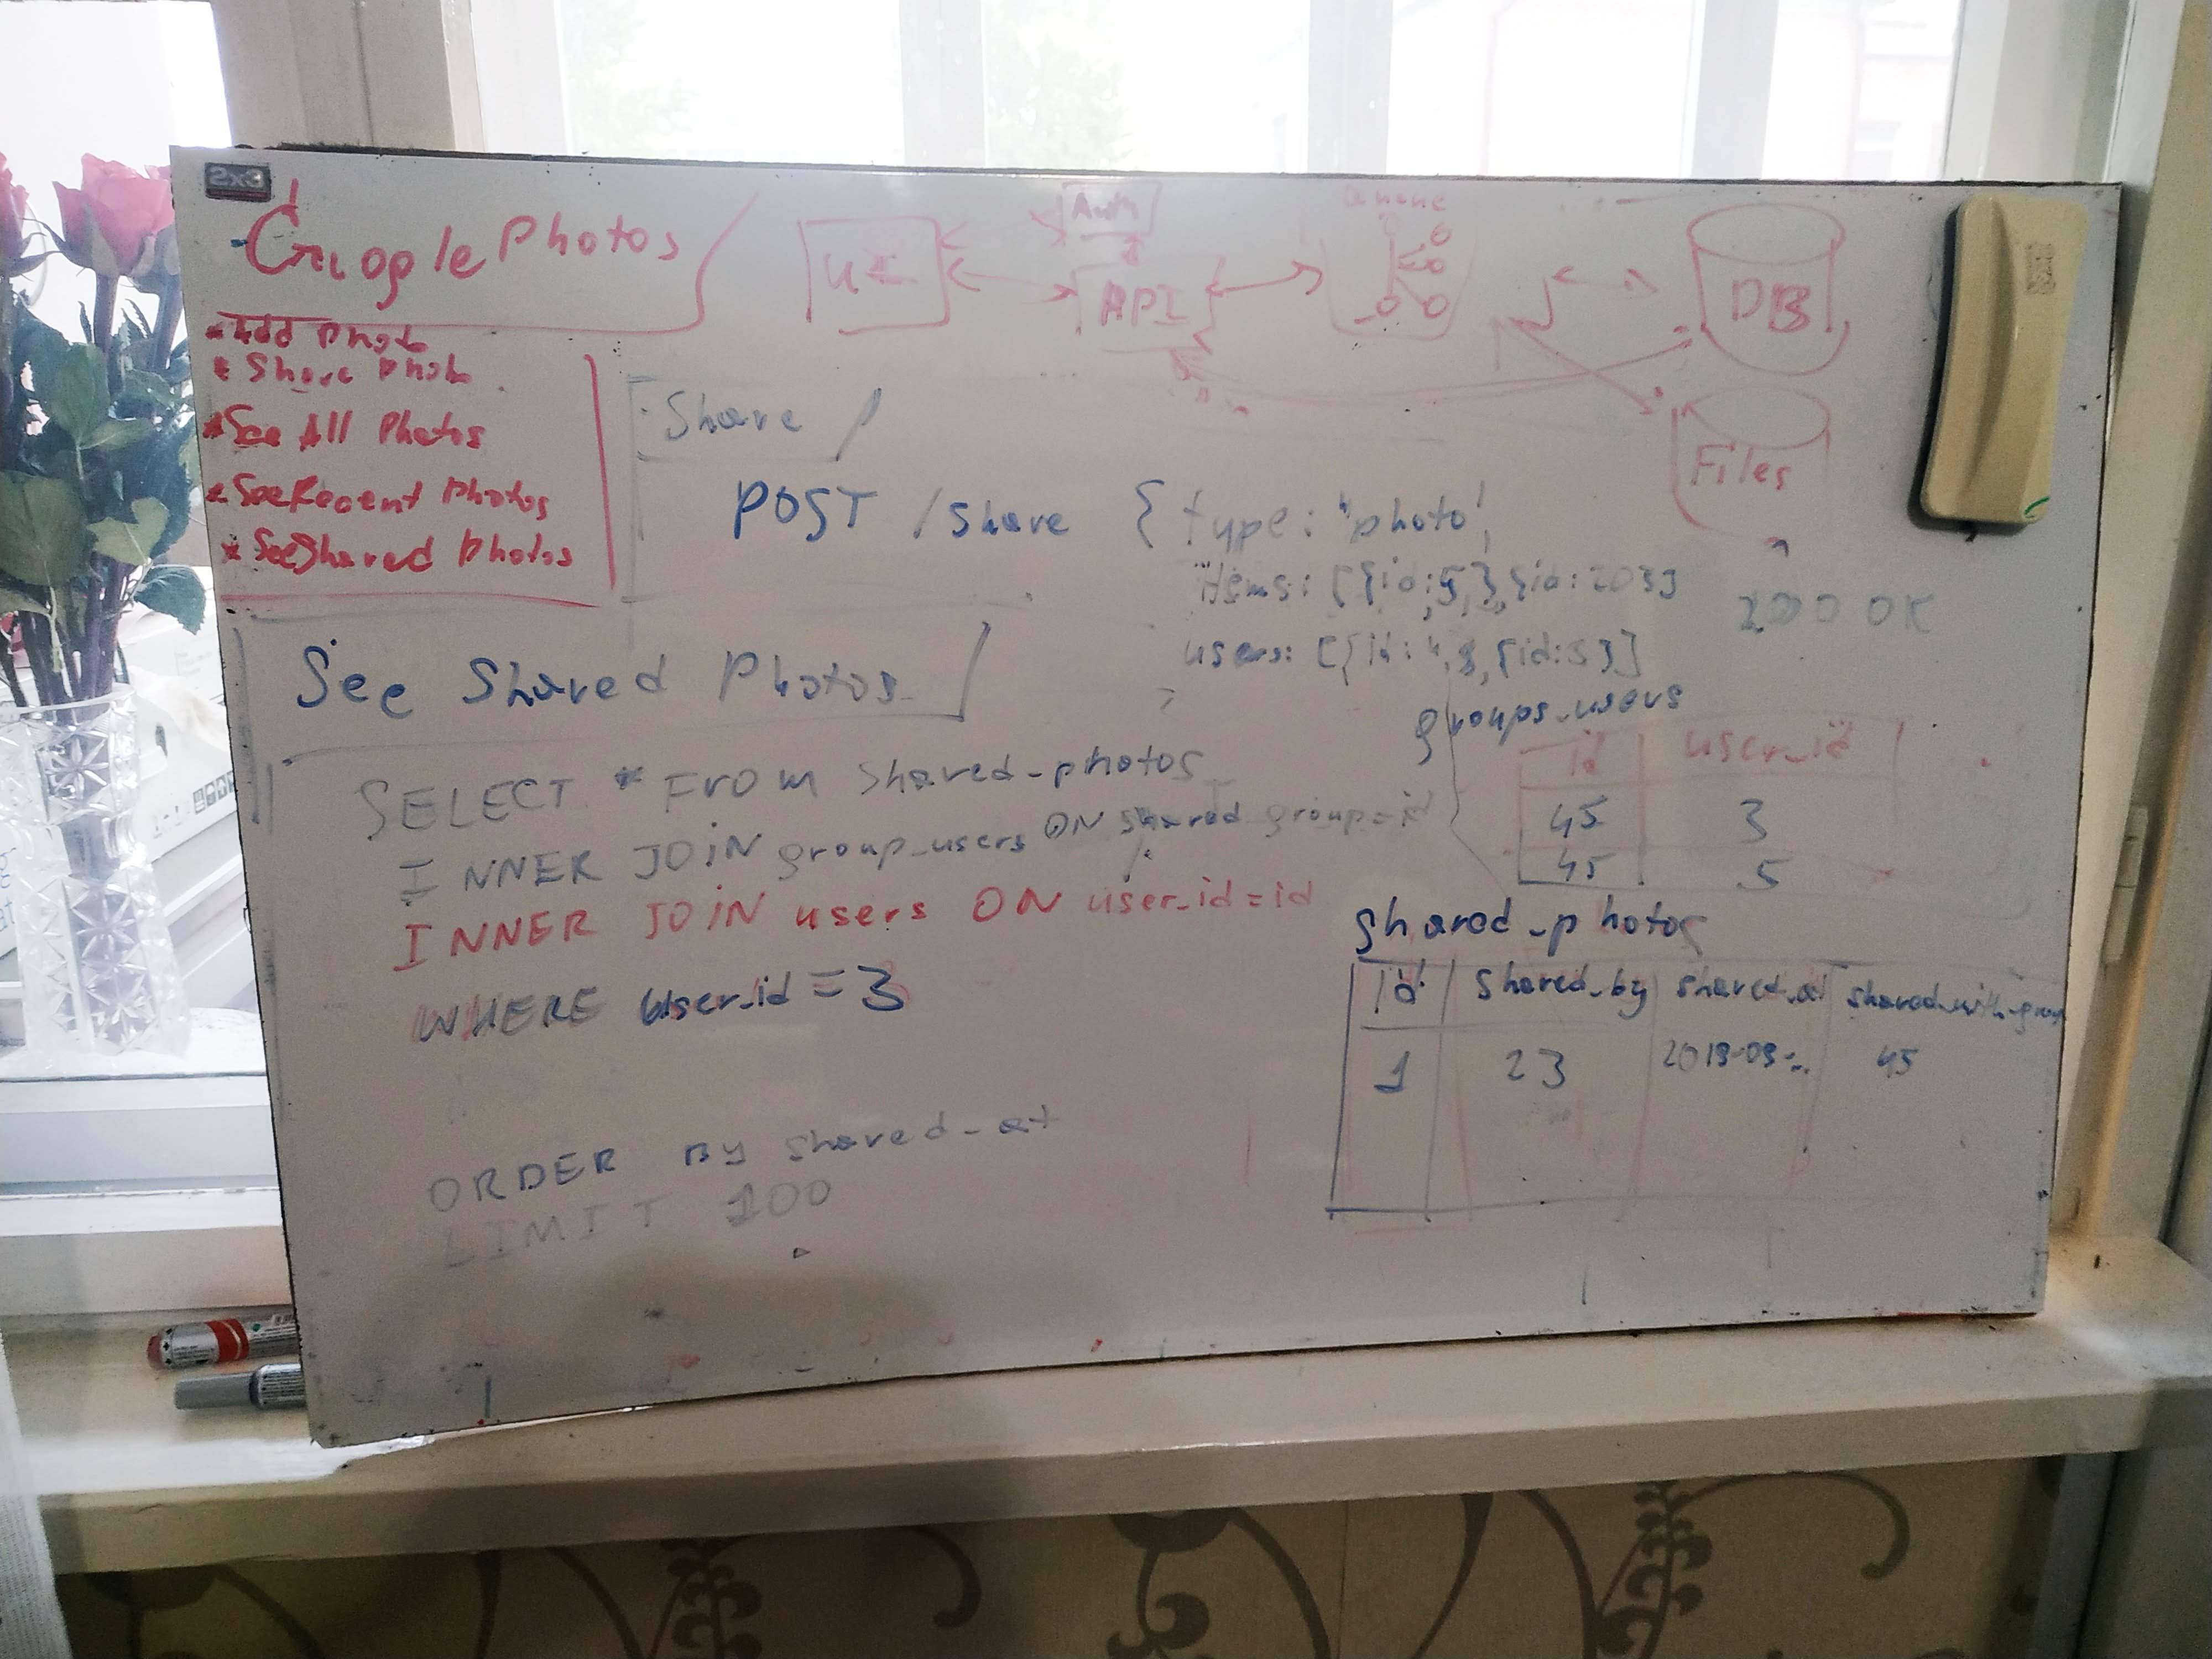 2x3
Google Photos
* Add Photo
* Share Photo
* See All Photos
* See Recent Photos
* See Shared Photos
Auth
API
DB
Files
Share
POST /share { type: "photo",
items: [{id:5},{id:203}]
users: [{id: 4},{id:5}]
200 OK
See Shared Photos
SELECT * FROM shared_photos
INNER JOIN group_users ON shared group=id
INNER JOIN users ON user_id=id
WHERE user_id = 3
ORDER BY shared_at
LIMIT 100
groups_users
id user_id
45 3
45 5
shared_photos
id shared_by shared_at shared_with_group
1 23 2019-09-.. 45